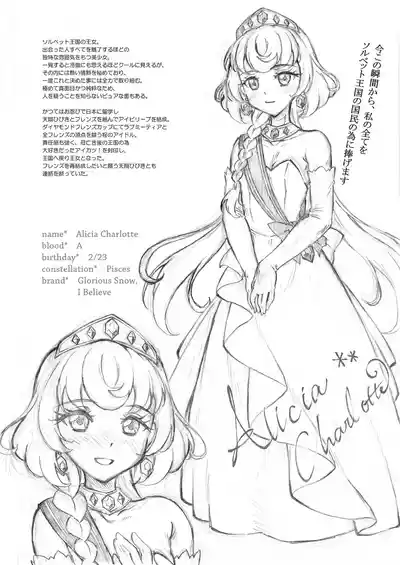 ソルベット王国の王女。
出会った人すべてを魅了するほどの
独特な雰囲気をもつ美少女。
一見すると冷徹にも思えるほどクールに見えるが、
その内には熱い情熱を秘めており、
一度これと決めた事には全力で取り組む。
極めて真面目かつ純粋なため、
人を疑うことを知らないピュアな面もある。
かつてはお忍びで日本に留学し
天翔ひびきとフレンズを組んでアイビリーブを結成。
ダイヤモンドフレンズカップにてラブミーティアと
全フレンズの頂点を競う程のアイドル。
責任感も強く、母亡き後の王国の為
大好きだったアイカツ!を封印し、
王国へ戻り王女となった。
フレンズを再結成したいと願う天翔ひびきとも
連絡を断っていた。
今この瞬間から、私の全てを
ソルベット王国の国民の為に捧げます
name* Alicia Charlotte
blood* A
birthday* 2/23
constellation* Pisces
brand* Glorious Snow,
I Believe
Alicia **
Charlotte